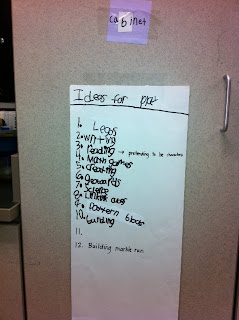 cabinet
Ideas for
1. Legos
2. writing
3. reading → pretending to be characters
4. Math games
5. creating
6. geoboards
7. Science
8. Linking cubes
9. Pattern blocks
10. building
11.
12. Building marble run